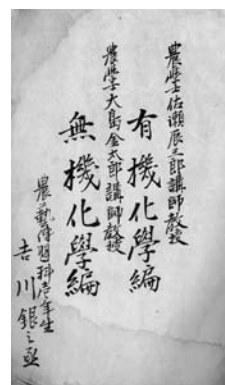 農學士佐瀬辰三郎講師教授
有機化學編
農學士大島金太郎講師教授
無機化學編
農藝傳習科壱年生
吉川銀之丞